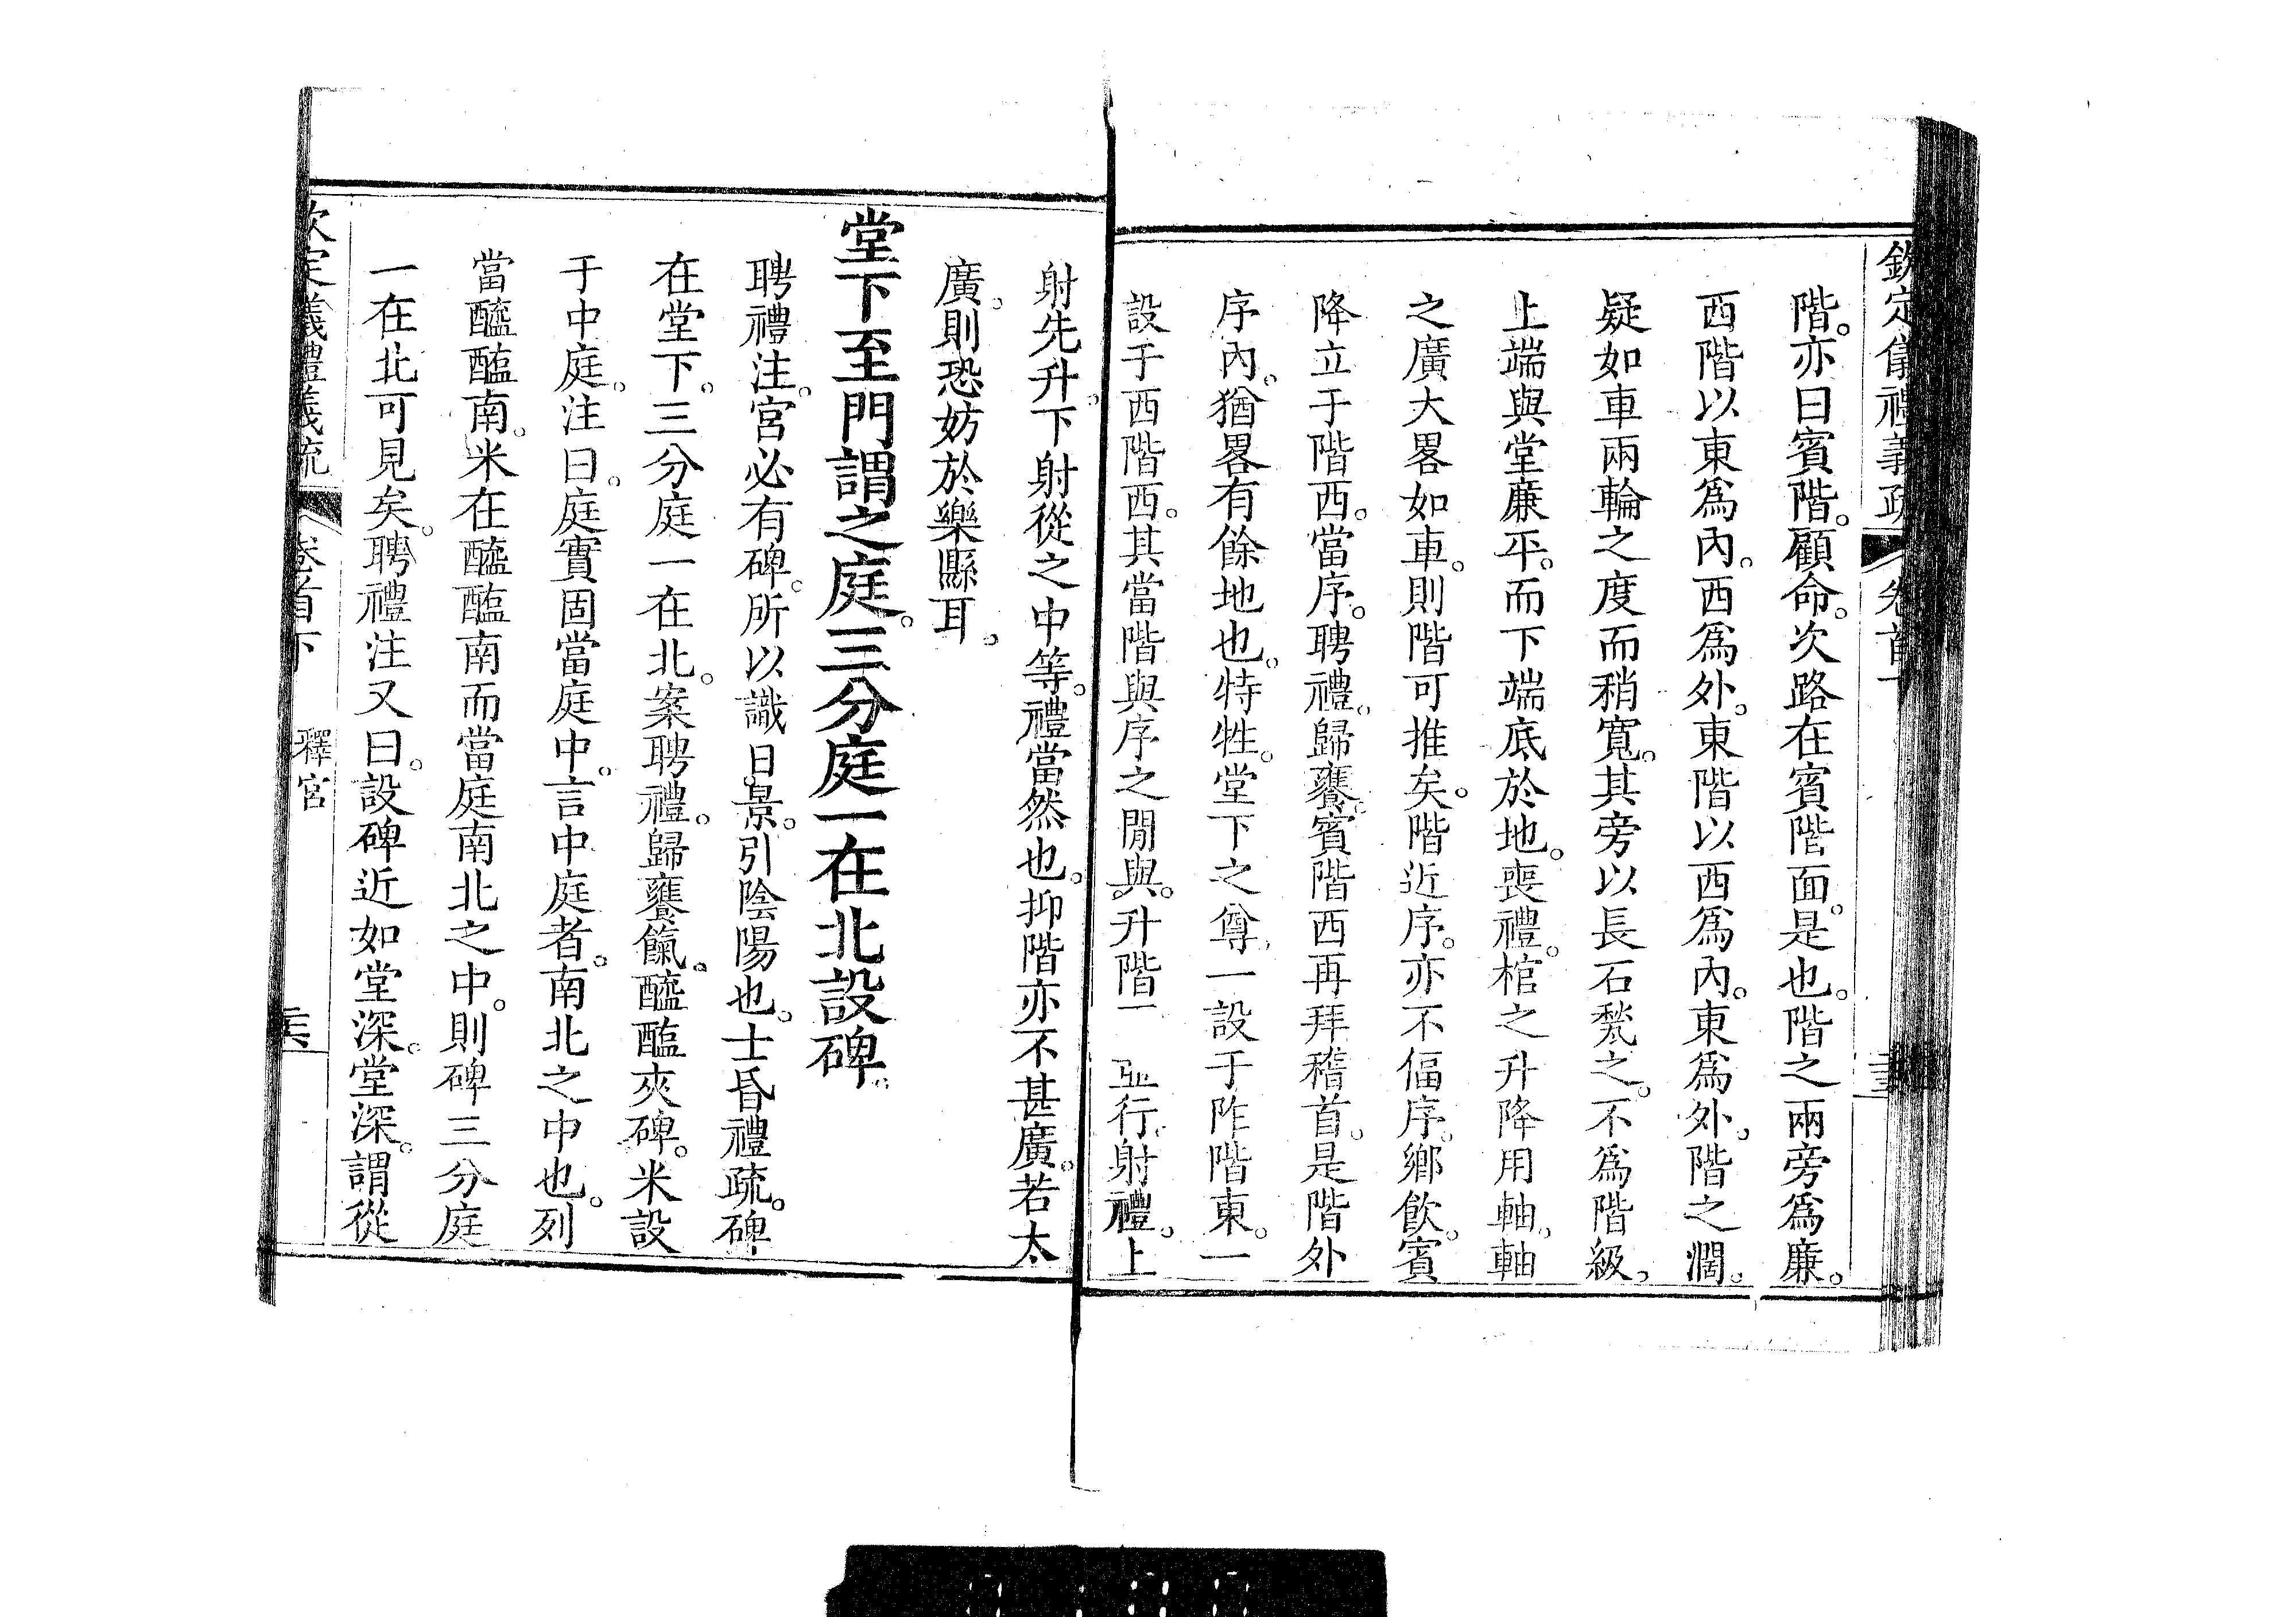 欽定儀禮義疏 卷首下
階。亦曰賓階。顧命。次路在賓階面。是也。階之兩旁爲廉。
西階以東爲內。西爲外。東階以西爲內。東爲外。階之濶。
疑如車兩輪之度而稍寬。其旁以長石甃之。不爲階級。
上端與堂廉平。而下端底於地。喪禮。棺之升降用軸。軸
之廣大畧如車。則階可推矣。階近序。亦不偪序。鄉飲。賓
降立于階西。當序。聘禮。歸饔。賓階西再拜稽首。是階外
序內。猶畧有餘地也。特牲。堂下之尊。一設于阼階東。一
設于西階西。其當階與序之閒與。升階 並行。射禮。上
射先升。下射從之中等。禮當然也。抑階亦不甚廣。若太
廣。則恐妨於樂縣耳。
堂下至門謂之庭。三分庭一在北設碑。
聘禮注。宮必有碑。所以識日景。引陰陽也。士昏禮疏。碑
在堂下。三分庭一在北。案聘禮。歸饔餼。醯醢夾碑。米設
于中庭。注曰。庭實固當庭中。言中庭者。南北之中也。列
當醯醢南。米在醯醢南而當庭南北之中。則碑三分庭
一在北可見矣。聘禮注又曰。設碑近如堂深。堂深。謂從
欽定儀禮義疏 卷首下 釋宮